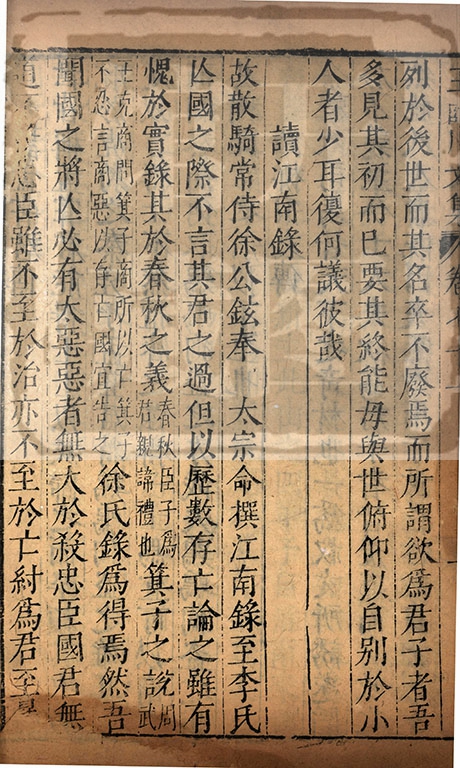 列於後世而其名卒不廢焉而所謂欲爲君子者吾
多見其初而巳要其終能毋與世俯仰以自别於小
人者少耳復何議彼哉
讀江南錄
故散騎常侍徐公鉉奉 太宗命撰江南錄至李氏
亾國之際不言其君之過但以歷數存亡論之雖有
愧於實錄其於春秋之義春秋臣子爲君親諱禮也箕子之說周武
王克商問箕子商所以亡箕子不忍言商惡以存亡國宜告之徐氏錄爲得焉然吾
聞國之將亾必有大惡惡者無大於殺忠臣國君無
道不殺忠臣雖不至於治亦不至於亡紂爲君至